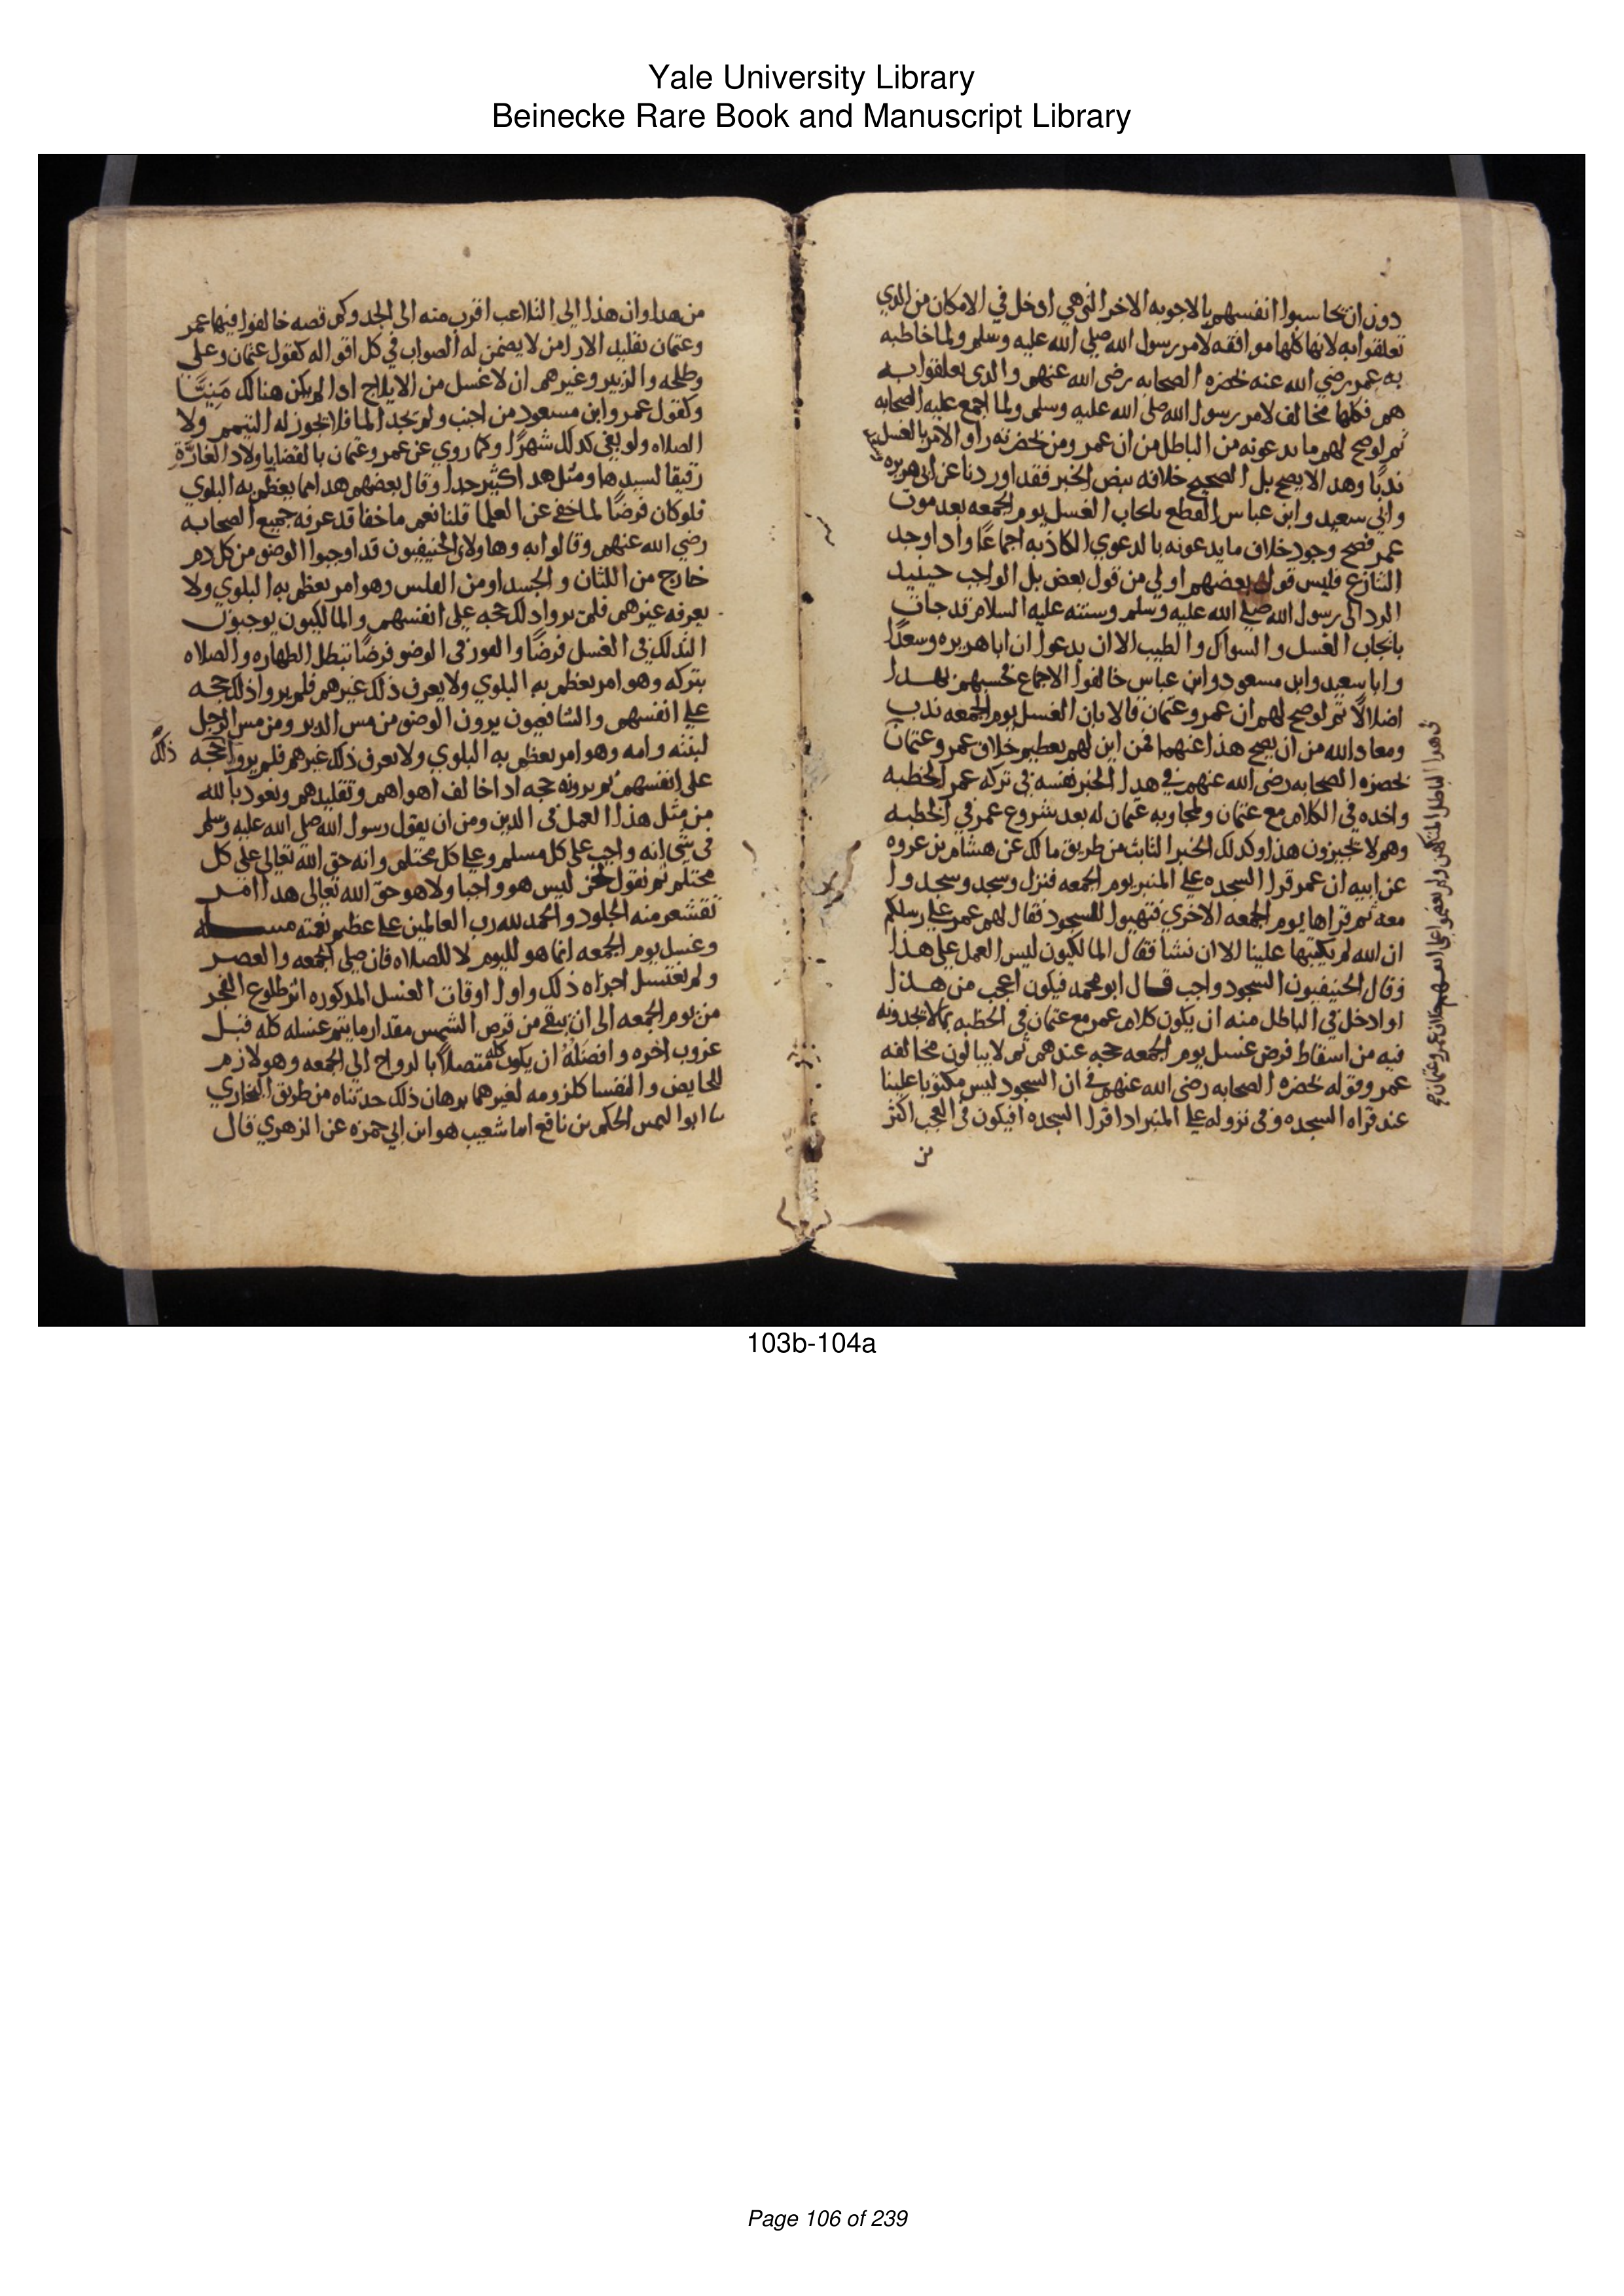 Yale University Library
Beinecke Rare Book and Manuscript Library
دون ان يحاسبوا انفسهم بالاجوبه الاخر التي هي ادخل في الامكان من الدي
تعلقوا به لانها كلها موافقه لامر رسول الله صلى الله عليه وسلم ولما خاطبه
به عمر رضي الله عنه بحضره الصحابه رضى الله عنهم والدى تعلقوا به
هم فكلها مخالف لامر رسول الله صلى الله عليه وسلم ولما اجمع عليه الصحابه
ثم لو صح لهم ما يدعونه من الباطل من ان عمر ومن بحضرته راوا الامر بالغسل
ندبًا وهدا لا يصح بل الصحيح خلافه بنص الخبر فقد اوردنا عن ابى هريره
وابي سعيد وابن عباس القطع بايجاب الغسل يوم الجمعه بعد موت
عمر فصح وجود خلاف ما يدعونه بالدعوي الكاذبه اجماعًا واذا وجد
التنازع فليس قول بعضهم اولي من قول بعض بل الواجب حينيد
الرد الى رسول الله صلى الله عليه وسلم وسنته عليه السلام قد جات
بايجاب الغسل والسواك والطيب الا ان يدعوا ان ابا هريره وسعدًا
وابا سعيد وابن مسعود وابن عباس خالفوا الاجماع فحسبهم بهدا
اضلالًا ثم لو صح لهم ان عمر وعثمان قالا بان الغسل يوم الجمعه ندب
ومعاد الله من ان يصح هذا عنهما فمن اين لهم تعظيم خلاف عمر وعثمان
بحضره الصحابه رضى الله عنهم في هدا الخبر نفسه في تركه عمر الخطبه
واخده في الكلام مع عثمان ومجاوبه عثمان له بعد شروع عمر في الخطبه
وهم لا يجيزون هذا وكدلك الخبر الثابت من طريق مالك عن هشام بن عروه
عن ابيه ان عمر قرا السجده على المنبر يوم الجمعه فنزل وسجد وسجدوا
معه ثم قراها يوم الجمعه الاخري فتهيوا للسجود فقال لهم عمر على رسلكم
ان الله لم يكتبها علينا الا ان نشا فقال المالكيون ليس العمل على هذا
وقال الحنيفيون السجود واجب قال ابو محمد فيكون اعجب من هذا
او ادخل في الباطل منه ان يكون كلام عمر مع عثمان في الخطبه بما لا يجدونه
فيه من اسقاط فرض غسل يوم الجمعه حجه عندهم ثم لا يبالون مخالفه
عمر وقوله بحضره الصحابه رضى الله عنهم في ان السجود ليس مكتوبا علينا
عند قراه السجده وفى نزوله على المنبر ادا قرا السجده افيكون في العجب اكثر
من
من هدا وان هذا الى التلاعب اقرب منه الى الجد وكم قصه خالفوا فيها عمر
وعثمان تقليد الارا من لا يضمن له الصواب في كل اقواله كقول عثمان وعلى
وطلحه والزبير وغيرهم ان لا غسل من الايلاج ادا لم يكن هنالك مَنِيّاً
وكقول عمر وابن مسعود من اجنب ولم يجد الما فلا يجوز له التيمم ولا
الصلاه ولو بقى كدلك شهرًا وكما روي عن عمر وعثمان بالقضايا ولاد الغارَّة
رقيقا لسيدها ومثل هدا كثير جدا وقال بعضهم هدا مما يعظم به البلوي
فلو كان فرضًا لما خفي عن العلما قلنا نعم ما خفا قد عرفه جميع الصحابه
رضي الله عنهم وقالوا به وهاولاي الحنيفيون قد اوجبوا الوضو من كل دم
خارج من اللثات والجسد او من القلس وهو امر يعظم به البلوي ولا
يعرفه غيرهم فلم يروا دلك حجه على انفسهم والمالكيون يوجبون
التدلك في الغسل فرضًا والفور فى الوضو فرضًا تبطل الطهاره والصلاه
بتركه وهو امر يعظم به البلوي ولا يعرف ذلك غيرهم فلم يروا ذلك حجه
على انفسهم والشافعيون يرون الوضو من مس الدبر ومن مس الرجل
ابنته وامه وهو امر يعظم به البلوي ولا يعرف ذلك غيرهم فلم يروا حجه
ذلك
على انفسهم ثم يرونه حجه ادا خالف اهواهم وتقليدهم ونعود بالله
من مثل هذا العمل فى الدين ومن ان يقول رسول الله صلى الله عليه وسلم
فى شي انه واجب على كل مسلم وعلى كل محتلم وانه حق الله تعالى على كل
محتلم ثم نقول نحن ليس هو واجبا ولا هو حق الله تعالى هدا امر
تقشعر منه الجلود والحمد لله رب العالمين على عظيم نعمته مسله
وغسل يوم الجمعه انما هو لليوم لا للصلاه فان صلى الجمعه والعصر
ولم يغتسل اجزاه ذلك واول اوقات الغسل المدكوره اثر طلوع الفجر
من يوم الجمعه الى ان يبقى من قرص الشمس مقدار ما يتم غسله كله قبل
غروب اخره وافضله ان يكون كله متصلًا بالرواح الي الجمعه وهو لازم
للحايض والنفسا كلزومه لغيرهما برهان ذلك حدثناه من طريق البخاري
نا ابو اليمن الحكم بن نافع انا شعيب هو ابن ابي حمزه عن الزهري قال
103b-104a
Page 106 of 239